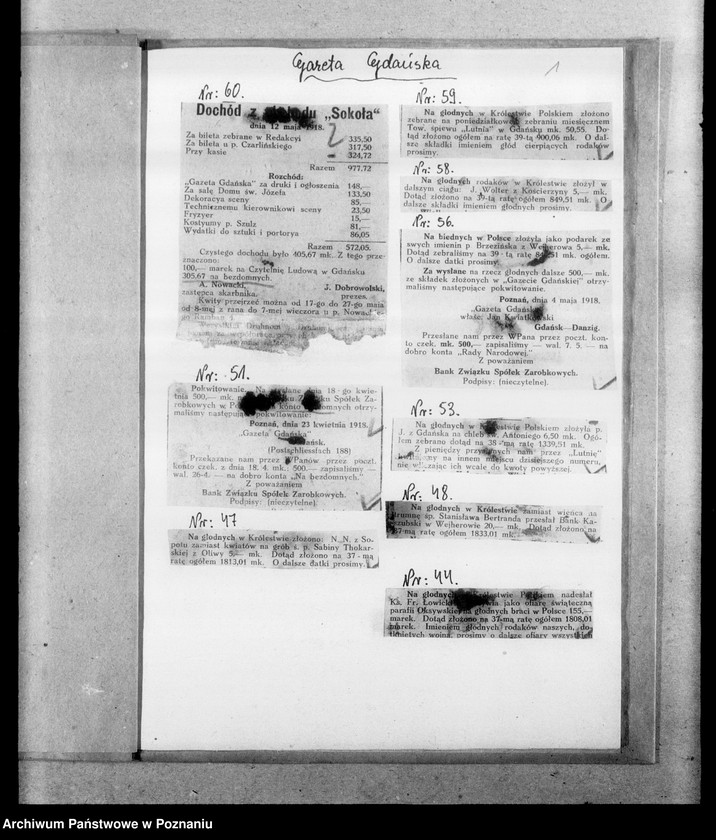 Gazeta Gdańska
1
Nr: 60.
Dochód z „Sokoła"
dnia 12 maja 1918.
Za bileta zebrane w Redakcyi 335,50
Za bileta u p. Czarlińskiego 317,50
Przy kasie 324,72
Razem 977,72
Rozchód:
„Gazeta Gdańska" za druki i ogłoszenia 148,—
Za salę Domu św. Józefa 133,50
Dekoracya sceny 85,—
Technicznemu kierownikowi sceny 23,50
Fryzyer 15,—
Kostyumy p. Szulz 81,—
Wydatki do sztuki i portorya 86,05
Razem 572,05.
Czystego dochodu było 405,67 mk. Z tego prze-
znaczono:
100,— marek na Czytelnię Ludową w Gdańsku
305,67 na bezdomnych.
A. Nowacki, J. Dobrowolski,
zastępca skarbnika. prezes.
Kwity przejrzeć można od 17-go do 27-go maja
od 8-mej z rana do 7-mej wieczora u p. Nowackie-
go
Nr: 51.
Pokwitowanie. Na wysłane dnia 18-go kwie-
tnia 500,— mk. Związku Spółek Za-
robkowych w konto bezdomnych otrzy-
maliśmy następujące pokwitowanie:
Poznań, dnia 23 kwietnia 1918.
„Gazeta Gdańska"
Gdańsk.
(Postschliessfach 188)
Przekazane nam przez Panów przez poczt.
konto czek. z dnia 18. 4. mk. 500,— zapisaliśmy —
wal. 26-4. — na dobro konta „Na bezdomnych."
Z poważaniem
Bank Związku Spółek Zarobkowych.
Podpisy: (nieczytelne).
Nr: 47
Na głodnych w Królestwie złożono: N. N. z So-
potu zamiast kwiatów na grób ś. p. Sabiny Thokar-
skiej z Oliwy 5,— mk. Dotąd złożono na 37-mą
ratę ogółem 1813,01 mk. O dalsze datki prosimy.
Nr: 59.
Na głodnych w Królestwie Polskiem złożono
zebrane na poniedziałkowem zebraniu miesięcznem
Tow. śpiewu „Lutnia" w Gdańsku mk. 50,55. Do-
tąd złożono ogółem na ratę 39-tą 900,06 mk. O dal-
sze składki imieniem głód cierpiących rodaków
prosimy.
Nr: 58.
Na głodnych rodaków w Królestwie złożył w
dalszym ciągu: J. Wolter z Kościerzyny 5,— mk.
Dotąd złożono na 39-tą ratę ogółem 849,51 mk. O
dalsze składki imieniem głodnych prosimy.
Nr: 56.
Na biednych w Polsce złożyła jako podarek ze
swych imienin p. Brzezińska z Wejherowa 5,— mk.
Dotąd zebraliśmy na 39-tą ratę mk. ogółem.
O dalsze datki prosimy.
Za wysłane na rzecz głodnych dalsze 500,— mk.
ze składek złożonych w „Gazecie Gdańskiej" otrzy-
maliśmy następujące pokwitowanie.
Poznań, dnia 4 maja 1918.
„Gazeta Gdańska"
właśc. Jan Kwiatkowski
Gdańsk—Danzig.
Przesłane nam przez WPana przez poczt. kon-
to czek. mk. 500,— zapisaliśmy — wal. 7. 5. — na
dobro konta „Rady Narodowej."
Z poważaniem
Bank Związku Spółek Zarobkowych.
Podpisy: (nieczytelne).
Nr: 53.
Na głodnych w Królestwie Polskiem złożyła p.
J. z Gdańska na chleb św. Antoniego 6,50 mk. Ogó-
łem zebrano dotąd na 38-mą ratę 1339,51 mk.
Z pieniędzy nam przez „Lutnię"
na innem miejscu dzisiejszego numeru,
nie wliczając ich wcale do kwoty powyższej.
Nr: 48.
Na głodnych w Królestwie zamiast wieńca na
trumnę śp. Stanisława Bertranda przesłał Bank Ka-
szubski w Wejherowie 20,— mk. Dotąd złożono na
37-mą ratę ogółem 1833.01 mk.
Nr: 44.
Na głodnych w Królestwie Polskiem nadesłał
Ks. Fr. Łowicki jako ofiarę świąteczną
parafii Oksywskiej na głodnych braci w Polsce 155,—
marek. Dotąd złożono na 37-mą ratę ogółem 1808,01
marek. Imieniem głodnych rodaków naszych, do-
tkniętych wojną, prosimy o dalsze ofiary
Archiwum Państwowe w Poznaniu